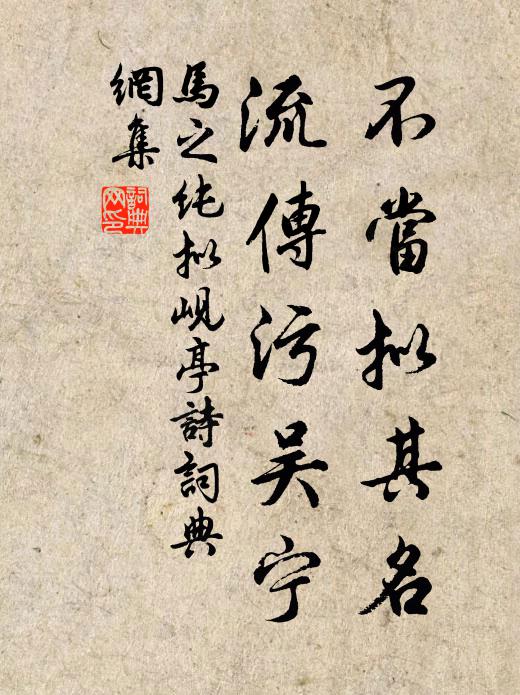 不當拟其名
流傳污吴宁
馬之纯拟岘亭詩詞典
網集
詞典网印